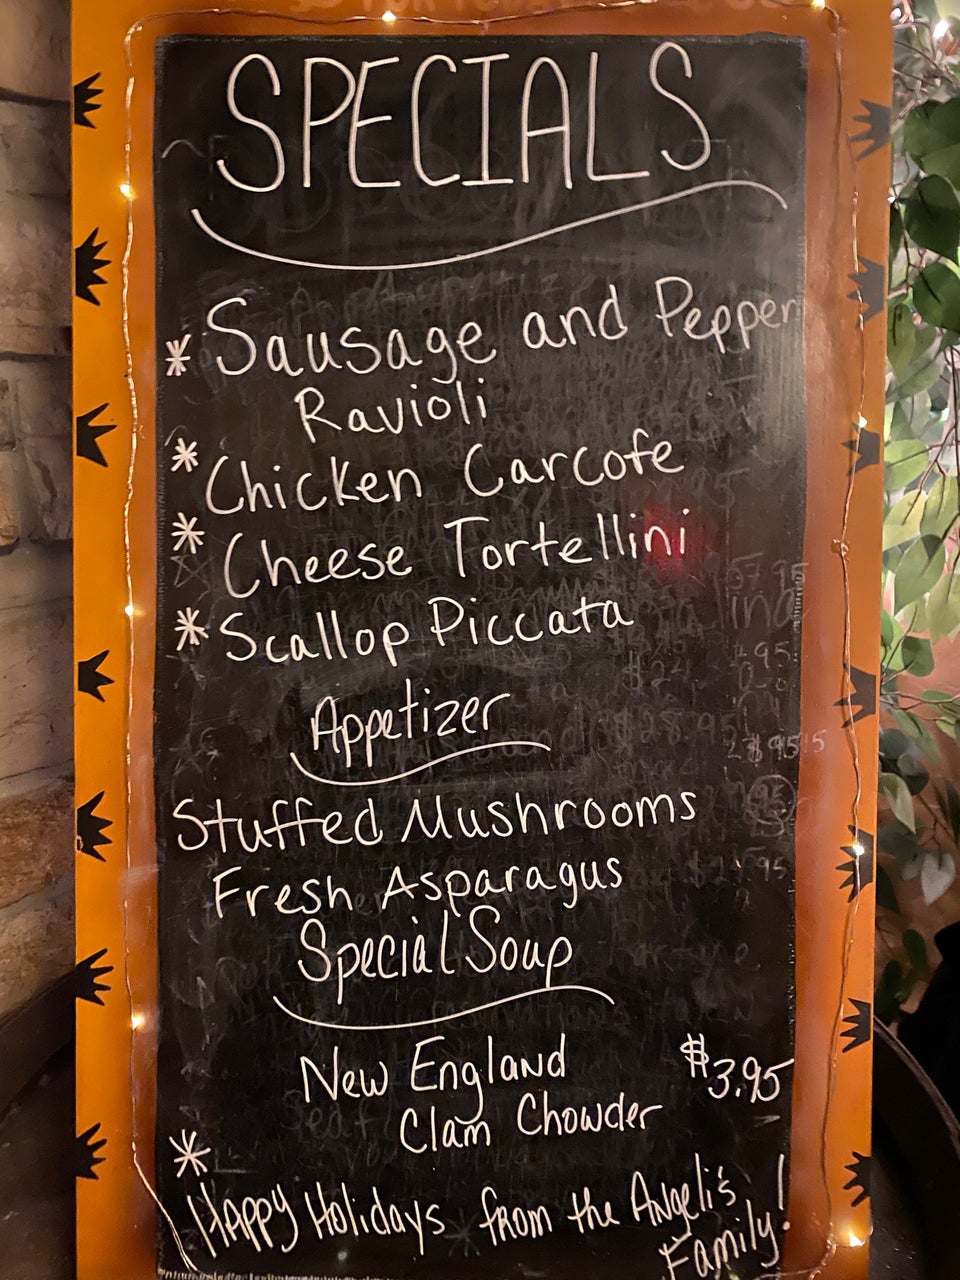 SPECIALS
* Sausage and Pepper
Ravioli
* Chicken Carcofe
* Cheese Tortellini
* Scallop Piccata
Appetizer
Stuffed Mushrooms
Fresh Asparagus
Special Soup
New England $3.95
Clam Chowder
* Happy Holidays from the Angeli's
Family!